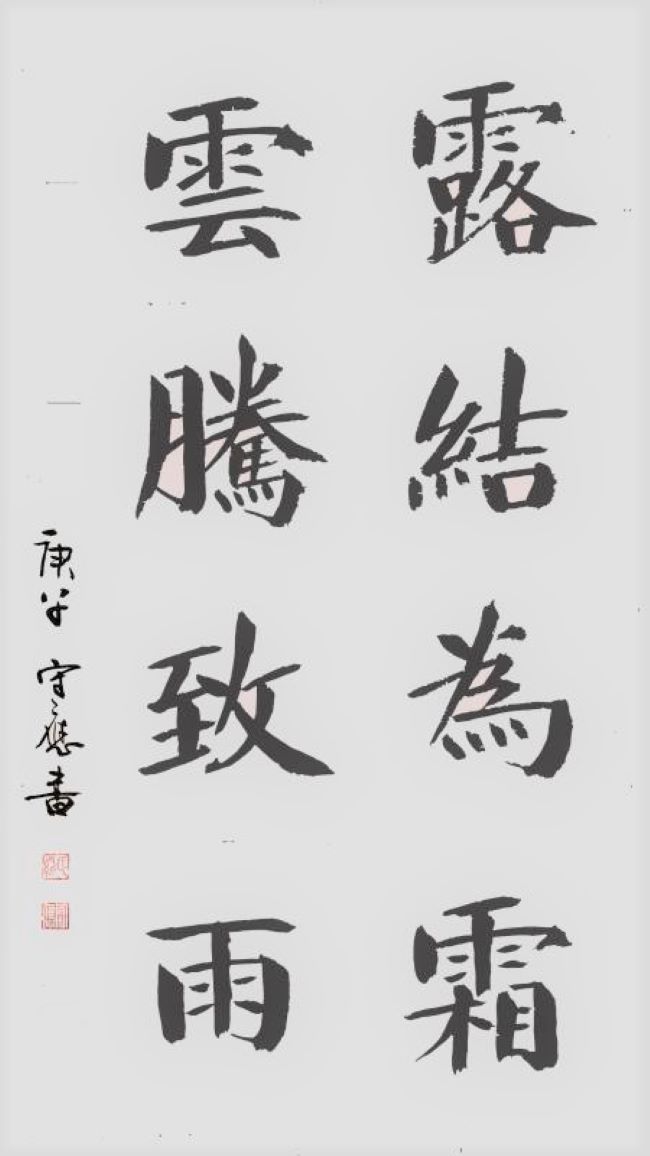 露結為霜
雲騰致雨
庚子 守應書